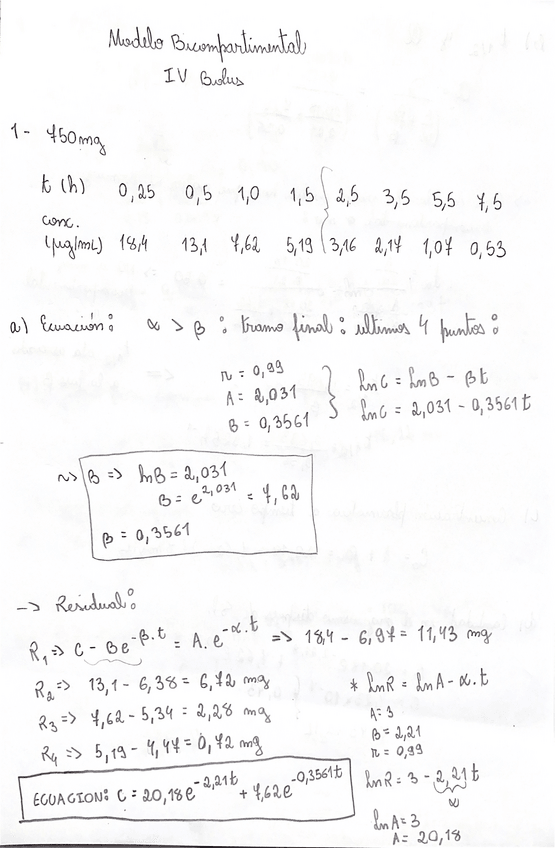 Modelo Bicompartimental
IV Bolus
1- 750mg
t (h) 0,25 0,5 1,0 1,5 2,5 3,5 5,5 7,5
conc.
(µg/mL) 18,4 13,1 7,62 5,19 3,16 2,17 1,07 0,53
a) Ecuación: α > β : tramo final: ultimos 4 puntos:
r = 0,99
A = 2,031
B = 0,3561
LnC = LnB - βt
LnC = 2,031 - 0,3561t
~> B => lnB = 2,031
B = e^2,031 = 7,62
β = 0,3561
-> Residual:
R1 => C - Be^-β.t = A.e^-α.t => 18,4 - 6,97 = 11,43 mg
R2 => 13,1 - 6,38 = 6,72 mg
R3 => 7,62 - 5,34 = 2,28 mg
R4 => 5,19 - 4,47 = 0,72 mg
* LnR = LnA - α.t
A = 3
B = 2,21
r = 0,99
LnR = 3 - 2,21t
α
LnA = 3
A = 20,18
ECUACION: C = 20,18e^-2,21t + 7,62e^-0,3561t